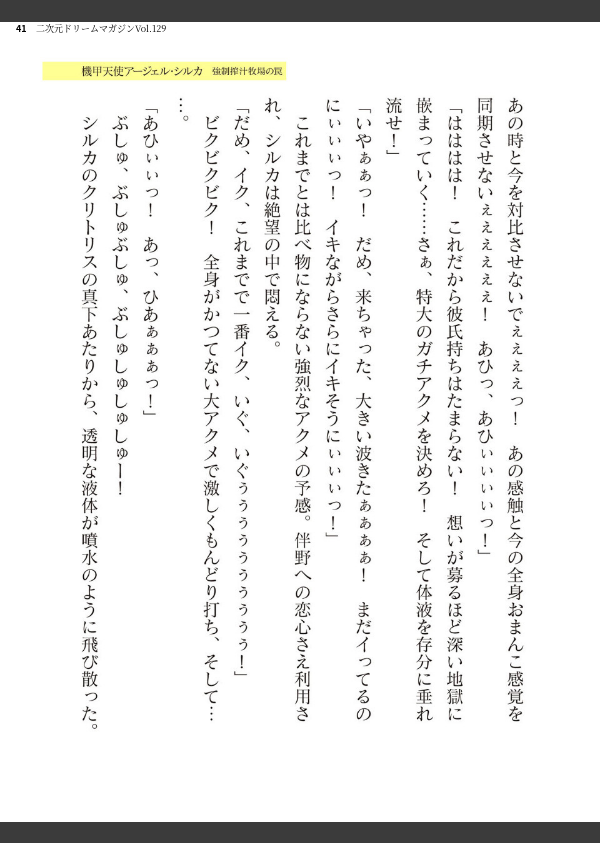 41 二次元ドリームマガジンVol.129
機甲天使アージェル・シルカ 強制搾汁牧場の罠
あの時と今を対比させないでぇぇぇぇっ！　あの感触と今の全身おまんこ感覚を
同期させないぇぇぇぇぇぇ！　あひっ、あひぃぃぃぃっ！」
「はははは！　これだから彼氏持ちはたまらない！　想いが募るほど深い地獄に
嵌まっていく……さぁ、特大のガチアクメを決めろ！　そして体液を存分に垂れ
流せ！」
「いやぁぁっ！　だめ、来ちゃった、大きい波きたぁぁぁぁ！　まだイってるの
にぃぃぃっ！　イキながらさらにイキそうにぃぃぃっ！」
これまでとは比べ物にならない強烈なアクメの予感。伴野への恋心さえ利用さ
れ、シルカは絶望の中で悶える。
「だめ、イク、これまでで一番イク、いぐ、いぐぅぅぅぅぅぅぅぅぅ！」
ビクビクビク！　全身がかつてない大アクメで激しくもんどり打ち、そして…
…。
「あひぃぃっ！　あっ、ひあぁぁぁっ！」
ぶしゅ、ぶしゅぶしゅ、ぶしゅしゅしゅしゅー！
シルカのクリトリスの真下あたりから、透明な液体が噴水のように飛び散った。